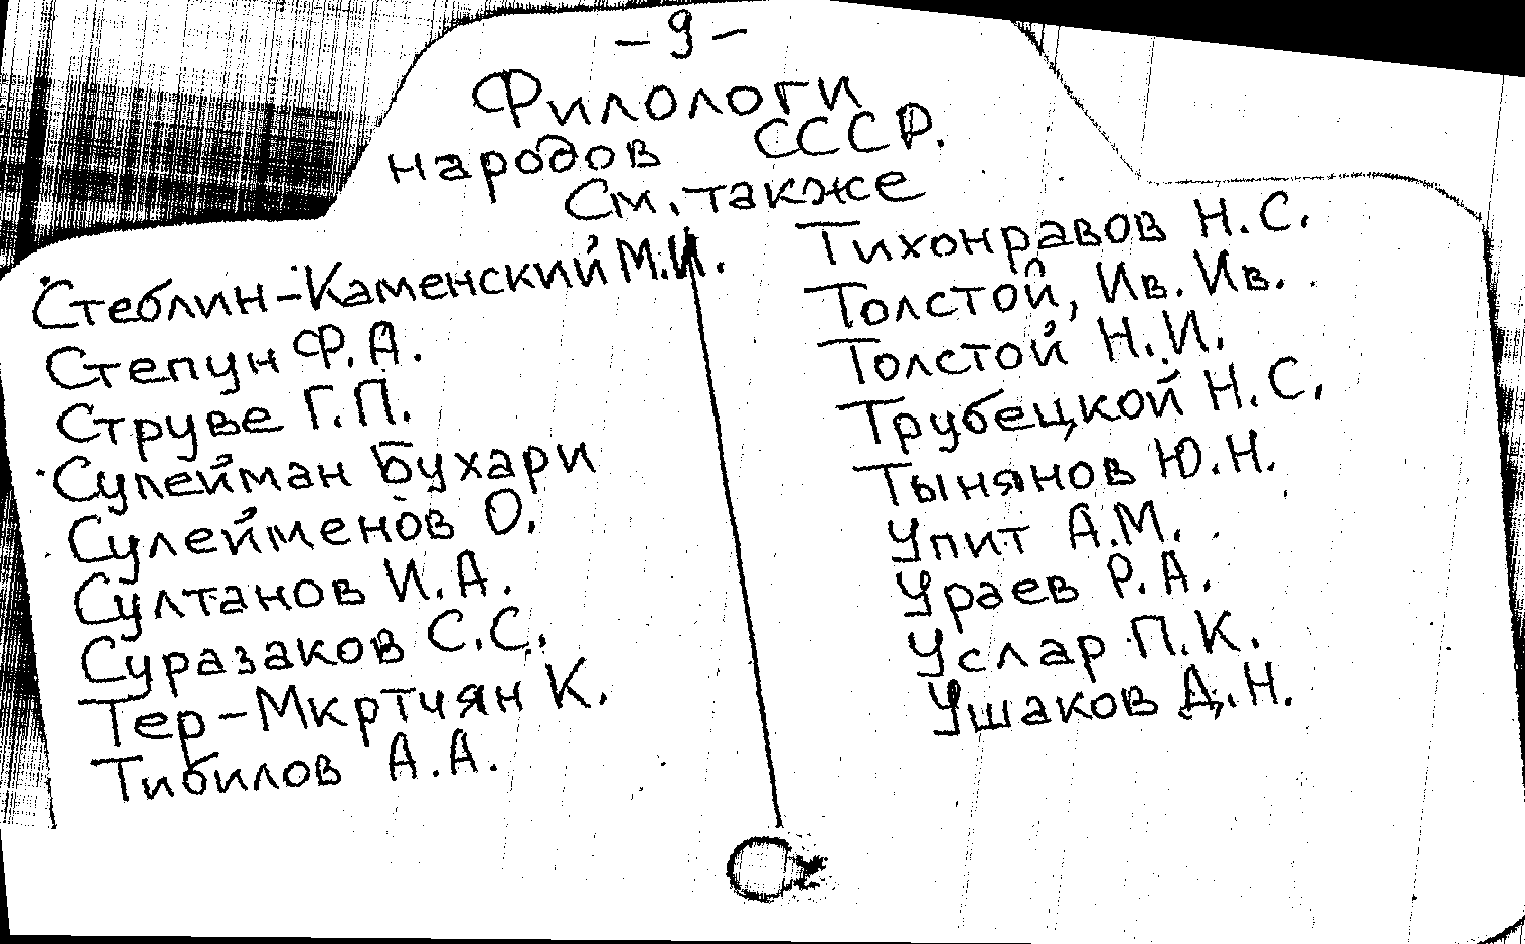 - 9 -
Филологи
народов СССР.
См. также
Стеблин-Каменский М.И.
Степун Ф.А.
Струве Г.П.
Сулейман Бухари
Сулейменов О.
Султанов И.А.
Суразаков С.С.
Тер-Мкртчян К.
Тибилов А.А.
Тихонравов Н.С.
Толстой, Ив. Ив.
Толстой Н.И.
Трубецкой Н.С.
Тынянов Ю.Н.
Упит А.М.
Ураев Р.А.
Услар П.К.
Ушаков Д.Н.